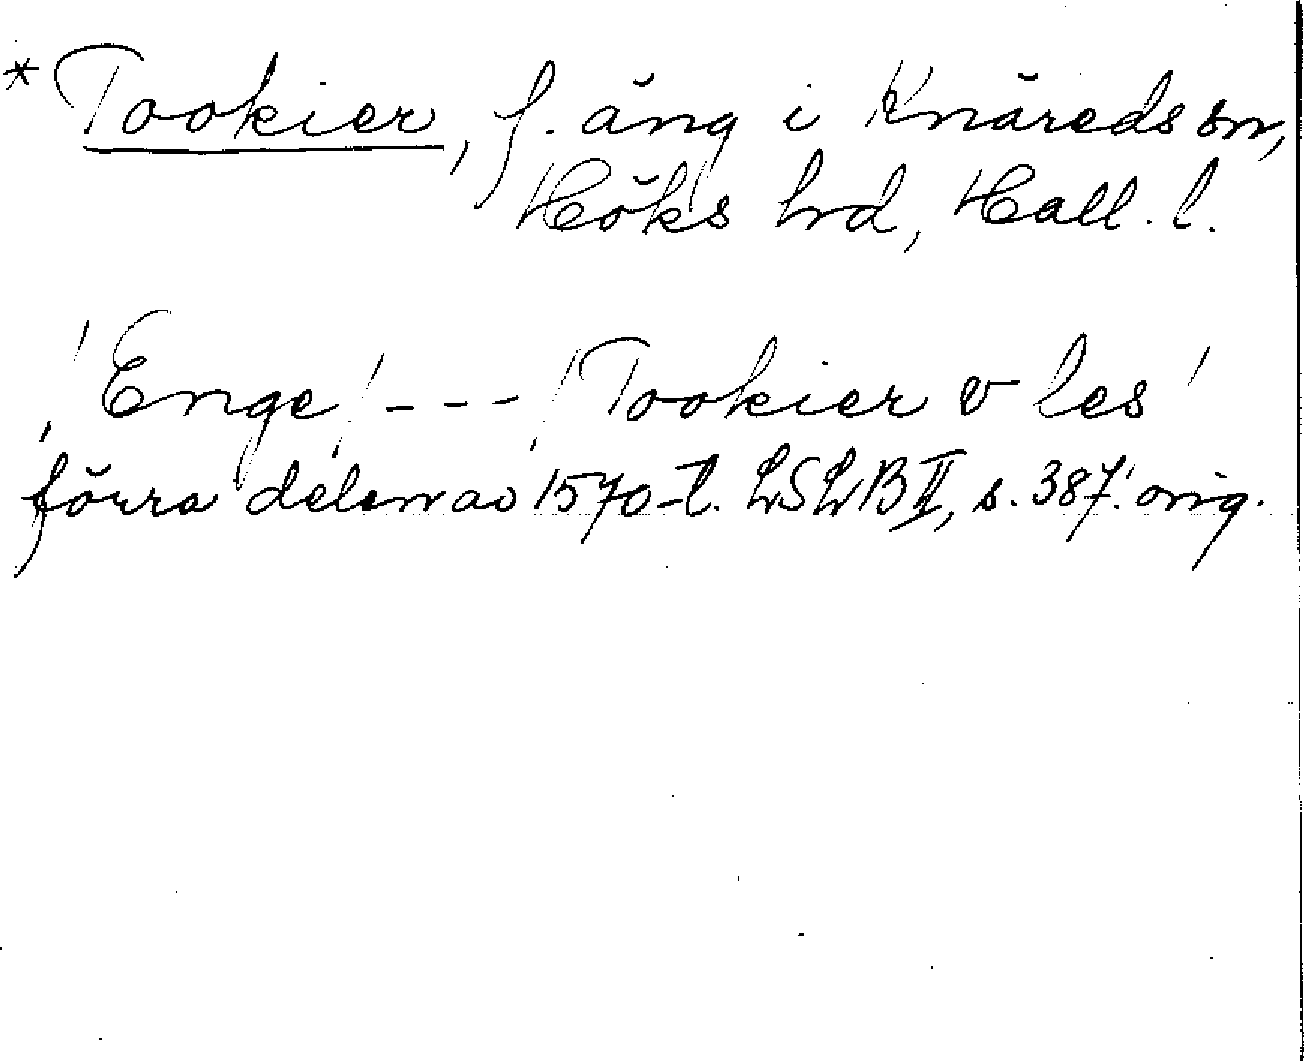 * Tookier, f. äng i Knäreds sn,
Höks hrd, Hall. l.
/Enge/ - - - /Tookier v les/
förra delen av 1570-t. LSLB II, s. 387. orig.